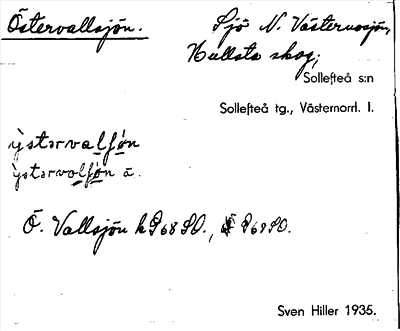 Östervallsjön. Sjö N. Västernosjön,
Hullsta skog;
Sollefteå s:n
Sollefteå tg., Västernorrl. l.
ỳstərvalʃö́n
ỳstərvolʃö́n ä.
Ö. Vallsjön k I 68 SO., I 69 SO.
Sven Hiller 1935.